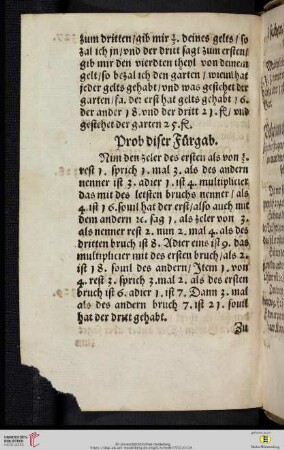 zum dritten/gib mir ʒ. deines gelts/so
zal ich jn/vnd der dritt sagt zum ersten/
gib mir den vierdten theyl von deinem
gelt/so bezal ich den garten/wieuil hat
jeder gelts gehabt/vnd was gestehet der
garten/fa. der erst hat gelts gehabt 16.
der ander 18. vnd der dritt 21. fl/vnd
gestehet der garten 25. fl.
Prob diser Fürgab.
Nim den zeler des ersten als von ʒ.
rest 1. sprich 1. mal 3. als des andern
nenner ist 3. adier 1. ist 4. multiplicier
das mit des letsten bruchs nenner/als
4. ist 16. souil hat der erst/also auch mit
dem andern ꝛc. sag 1. als zeler von 3.
als nenner rest 2. nun 2. mal 4. als des
dritten bruch ist 8. Adier eins ist 9. das
multiplicier mit des ersten bruch/als 2.
ist 18. souil des andern/Item 1. von
4. rest 3. sprich 3. mal 2. als des ersten
bruch ist 6. adier 1. ist 7. Dann 3. mal
als des andern bruch 7. ist 21. souil
hat der dritt gehabt.
Zu